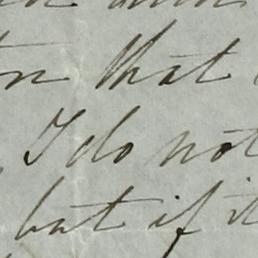 that
I do not
but if it